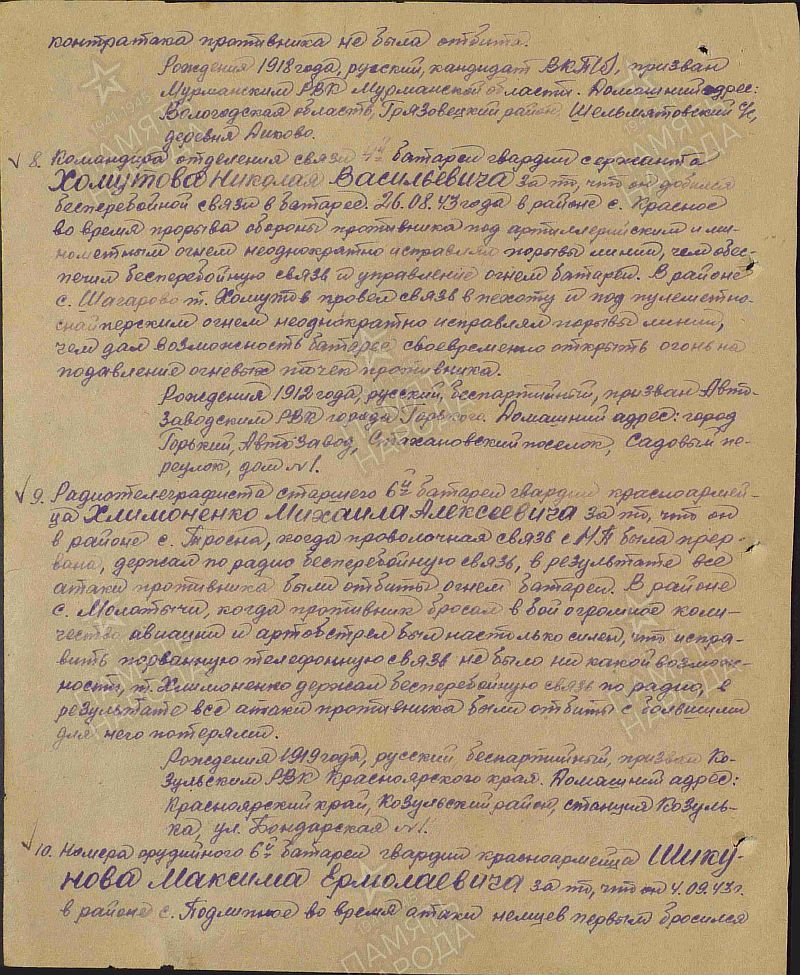 контратака противника не была отбита.
Рождения 1918 года, русский, кандидат ВКП(б), призван
Мурманским РВК Мурманской области. Домашний адрес:
Вологодская область, Грязовецкий район, с/с,
деревня
8. Командира отделения связи 4й батареи гвардии сержанта
Хомутова Николая Васильевича за то, что он добился
бесперебойной связи в батарее. 26.08.43 года в районе с. Красное
во время прорыва обороны противника под артиллерийским и ми-
нометным огнем неоднократно исправлял порывы линии, чем обес-
печил бесперебойную связь и управление огнем батареи. В районе
с. Шагарово т. Хомутов провел связь в пехоту и под пулеметно-
снайперским огнем неоднократно исправлял порывы линии,
чем дал возможность батарее своевременно открыть огонь на
подавление огневых точек противника.
Рождения 1912 года, русский, беспартийный, призван Авто-
Заводским РВК города Горького. Домашний адрес: город
Горький, АвтоЗавод, Стахановский поселок, Садовый пе-
реулок, дом №1.
9. Радиотелеграфиста старшего 6й батареи гвардии красноармей-
ца Хлимоненко Михаила Алексеевича за то, что он
в районе с. Тросна, когда проволочная связь с НП была прер-
вана, держал по радио бесперебойную связь, в результате все
атаки противника были отбиты огнем батареи. В районе
с. Молотычи, когда противник бросал в бой огромное коли-
чество авиации и артобстрел был настолько силен, что испра-
вить порванную телефонную связь не было ни какой возмож-
ности, т. Хлимоненко держал бесперебойную связь по радио, в
результате все атаки противника были отбиты с большими
для него потерями.
Рождения 1919 года, русский, беспартийный, призван Ко-
зульским РВК Красноярского края. Домашний адрес:
Красноярский край, Козульский район, станция Козуль-
ка, ул. Бондарская №1.
10. Номера орудийного 6й батареи гвардии красноармейца Шику-
нова Максима Ермолаевича за то, что он 4.09.43 г.
в районе с. Подлипное во время атаки немцев первым бросился
ПАМЯТЬ НАРОДА